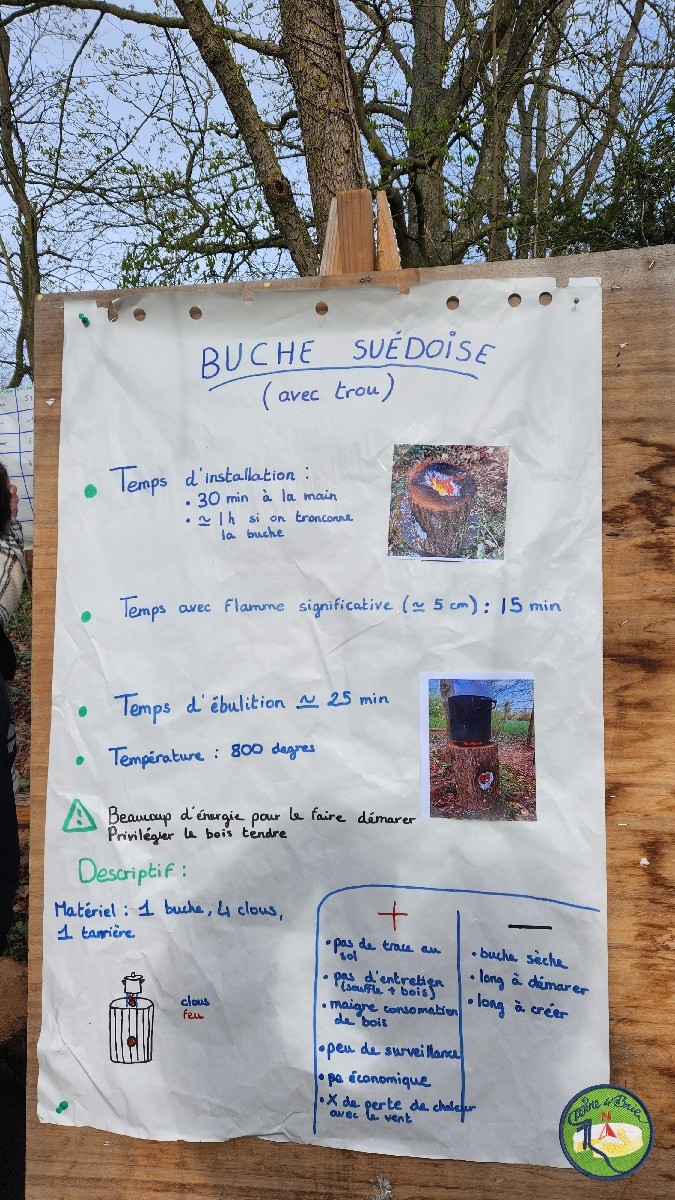 BUCHE SUÉDOISE
(avec trou)
Temps d'installation :
• 30 min à la main
• ≃ 1h si on tronconne
la buche
Temps avec flamme significative (≃ 5 cm) : 15 min
Temps d'ébulition ≃ 25 min
Température : 800 degres
Beaucoup d'énergie pour le faire démarer
Privilégier le bois tendre
Descriptif :
Matériel : 1 buche, 4 clous,
1 tarrière
clous
feu
+
• pas de trace au
sol
• pas d'entretien
(souffle + bois)
• maigre consomation
de bois
• peu de surveillance
• pa économique
• X de perte de chaleur
avec le vent
—
• buche sèche
• long à démarer
• long à créer
N